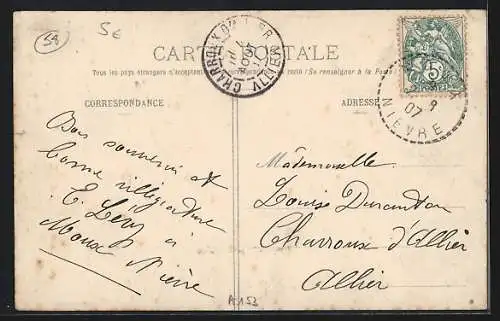 58
5€
CARTE POSTALE
Tous les pays étrangers n'acceptent
(Se renseigner à la Poste)
CORRESPONDANCE
ADRESSE
CHARROUX D'ALLIER
ALLIER
NIEVRE
9
07
5
Bon souvenir et
bonne villégiature
E. Lévy à
Moux Nièvre
Mademoiselle
Louise Durandton
Charroux d'Allier
Allier
A 152